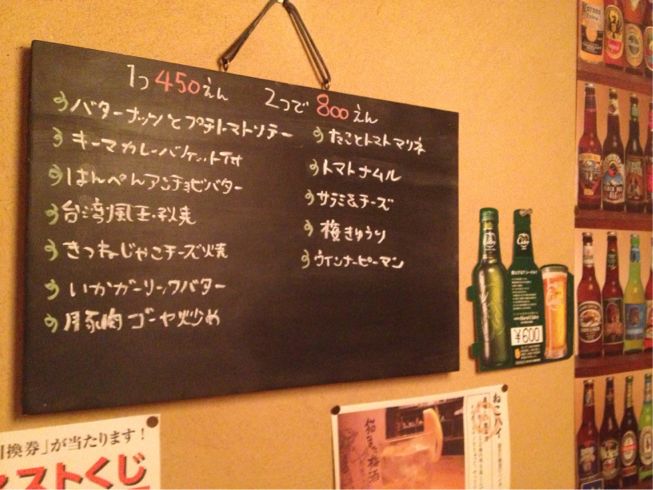 1つ 450えん 2つで 800えん
バターナッツとプチトマトソテー
キーマカレーバゲット付
はんぺんアンチョビバター
台湾風玉子焼
きつねじゃこチーズ焼
いかガーリックバター
豚肉ゴーヤ炒め
たことトマトマリネ
トマトナムル
サラミ&チーズ
梅きゅうり
ウインナーピーマン
¥600
引換券」が当たります!
ストくじ
ねこハイ
梅酒